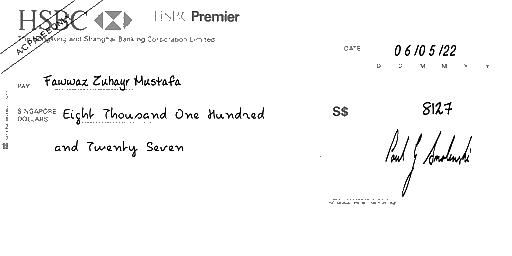 HSBC HSBC Premier
The Hongkong and Shanghai Banking Corporation Limited
A/C PAYEE ONLY
DATE 06/05/22
D D M M Y Y
PAY Fawwaz Zuhayr Mustafa
SINGAPORE DOLLARS Eight Thousand One Hundred
and Twenty Seven
S$ 8127